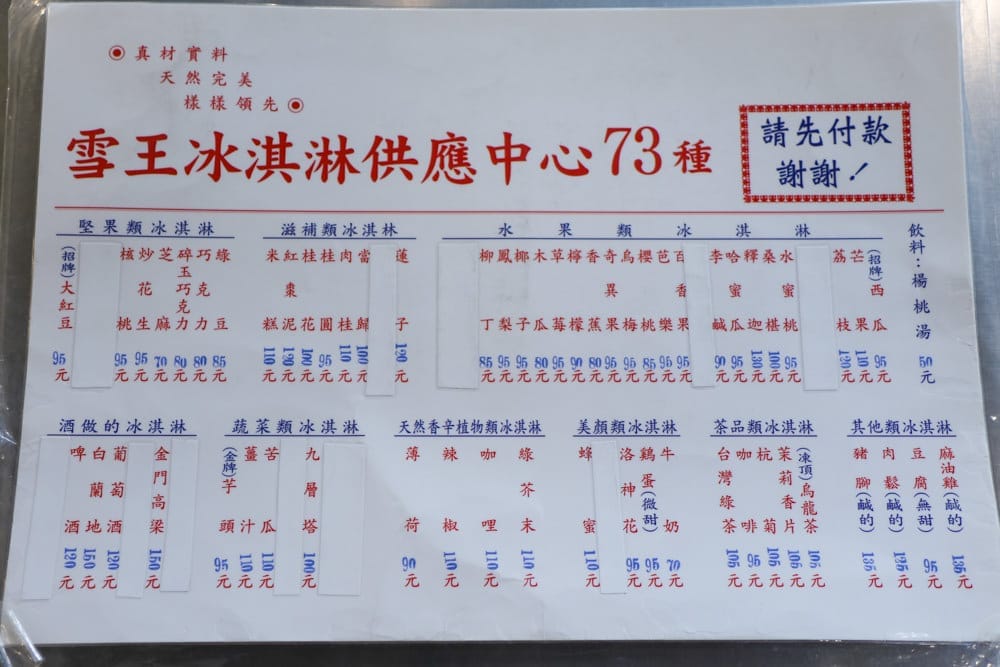 真材實料
天然完美
樣樣領先
雪王冰淇淋供應中心73種
請先付款
謝謝！
堅果類冰淇淋
(招牌)大紅豆 95元
核桃 95元
炒花生 95元
芝麻 70元
碎玉巧克力 80元
巧克力 80元
綠豆 85元
滋補類冰淇淋
米糕 110元
紅棗泥 120元
桂花 100元
桂圓 95元
肉桂 110元
當歸 100元
蓮子 120元
水果類冰淇淋
柳丁 85元
鳳梨 95元
椰子 95元
木瓜 80元
草莓 95元
檸檬 95元
香蕉 90元
奇異果 95元
烏梅 95元
櫻桃 85元
芭樂 95元
百香果 95元
李鹹 90元
哈蜜瓜 95元
釋迦 130元
桑椹 100元
水蜜桃 95元
荔枝 120元
芒果 110元
(招牌)西瓜 95元
飲料：楊桃湯 50元
酒做的冰淇淋
啤酒 120元
白蘭地 150元
葡萄酒 120元
金門高梁 150元
蔬菜類冰淇淋
(金牌)芋頭 95元
薑汁 110元
苦瓜 110元
九層塔 100元
天然香辛植物類冰淇淋
薄荷 90元
辣椒 110元
咖哩 110元
綠芥末 110元
美顏類冰淇淋
蜂蜜 110元
洛神花 95元
鷄蛋(微甜) 95元
牛奶 70元
茶品類冰淇淋
台灣綠茶 105元
咖啡 95元
杭菊 105元
茉莉香片 105元
(凍頂)烏龍茶 105元
其他類冰淇淋
豬腳(鹹的) 135元
肉鬆(鹹的) 125元
豆腐(無甜) 95元
麻油雞(鹹的) 135元